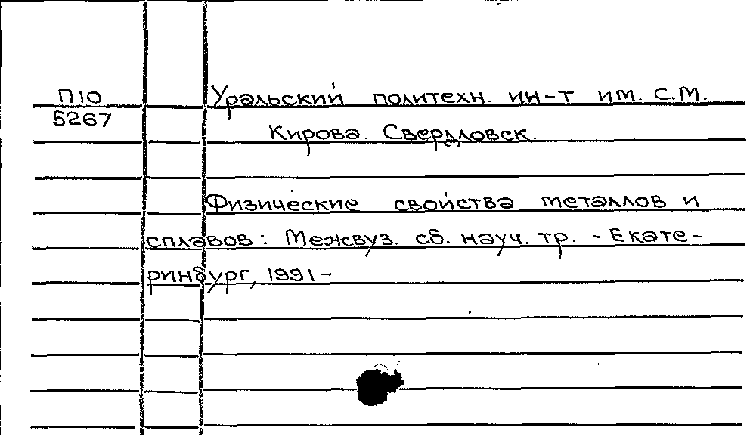 П10
5267
Уральский политехн. ин-т им. С.М.
Кирова. Свердловск.
Физические свойства металлов и
сплавов: Межвуз. сб. науч. тр. - Екате-
ринбург, 1991-